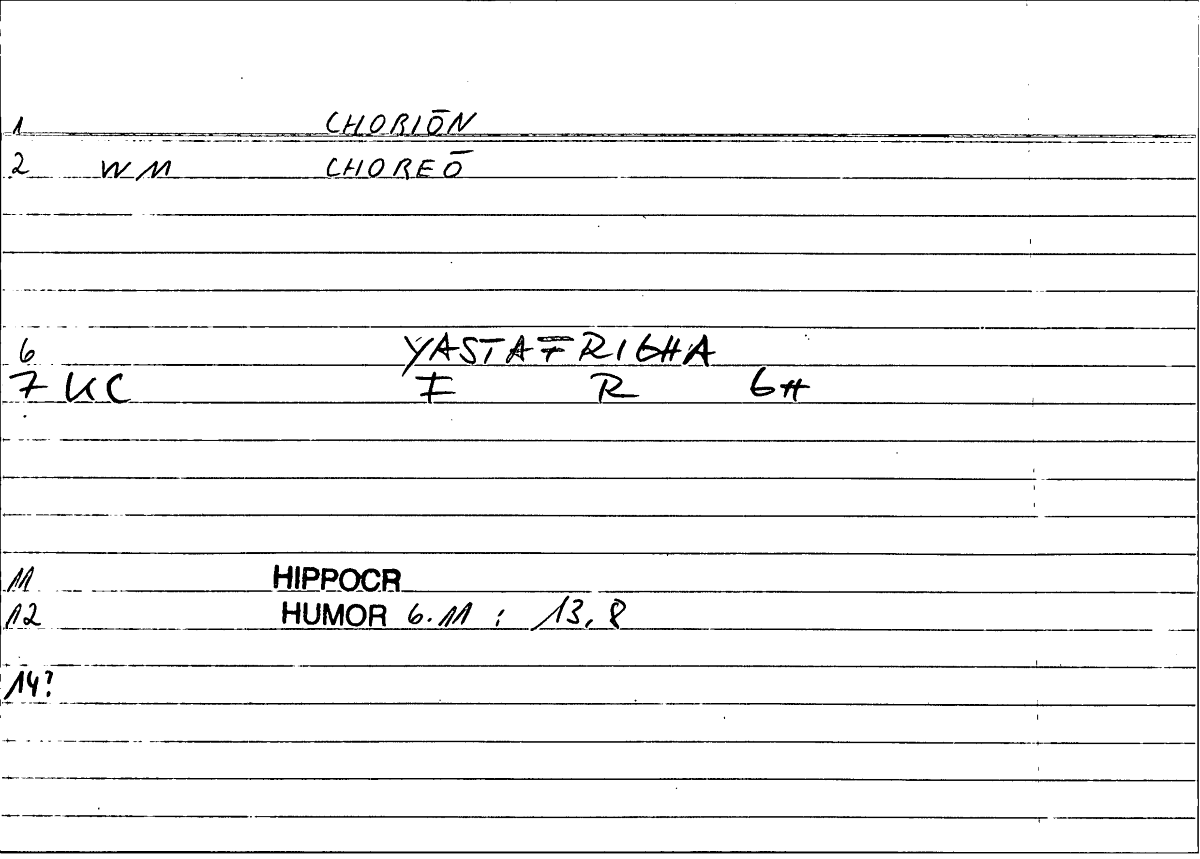 1 CHORIŌN
2 WM CHOREŌ
6 YASTAFRIGHA
7 UC F R GH
11 HIPPOCR
12 HUMOR 6.11 : 13,8
14?